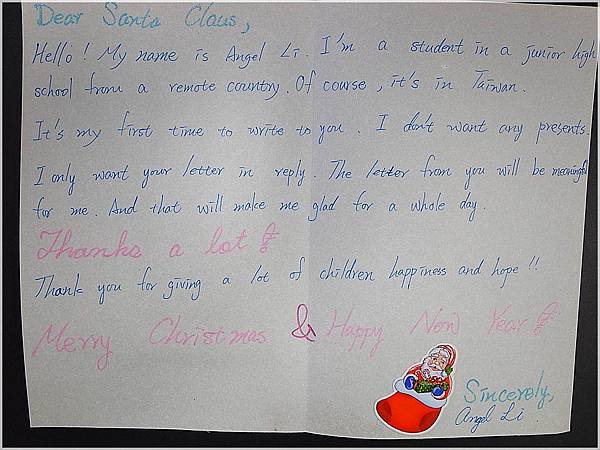 Dear Santa Claus,
Hello! My name is Angel Li. I'm a student in a junior high
school from a remote country. Of course, it's in Taiwan.
It's my first time to write to you. I don't want any presents.
I only want your letter in reply. The letter from you will be meaningful
for me. And that will make me glad for a whole day.
Thanks a lot!
Thank you for giving a lot of children happiness and hope!!
Merry Christmas & Happy New Year!
Sincerely,
Angel Li.